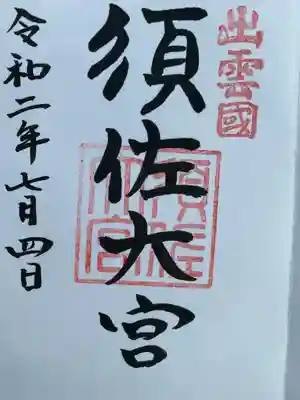 出雲國
須佐大宮
須佐大宮
令和二年七月四日